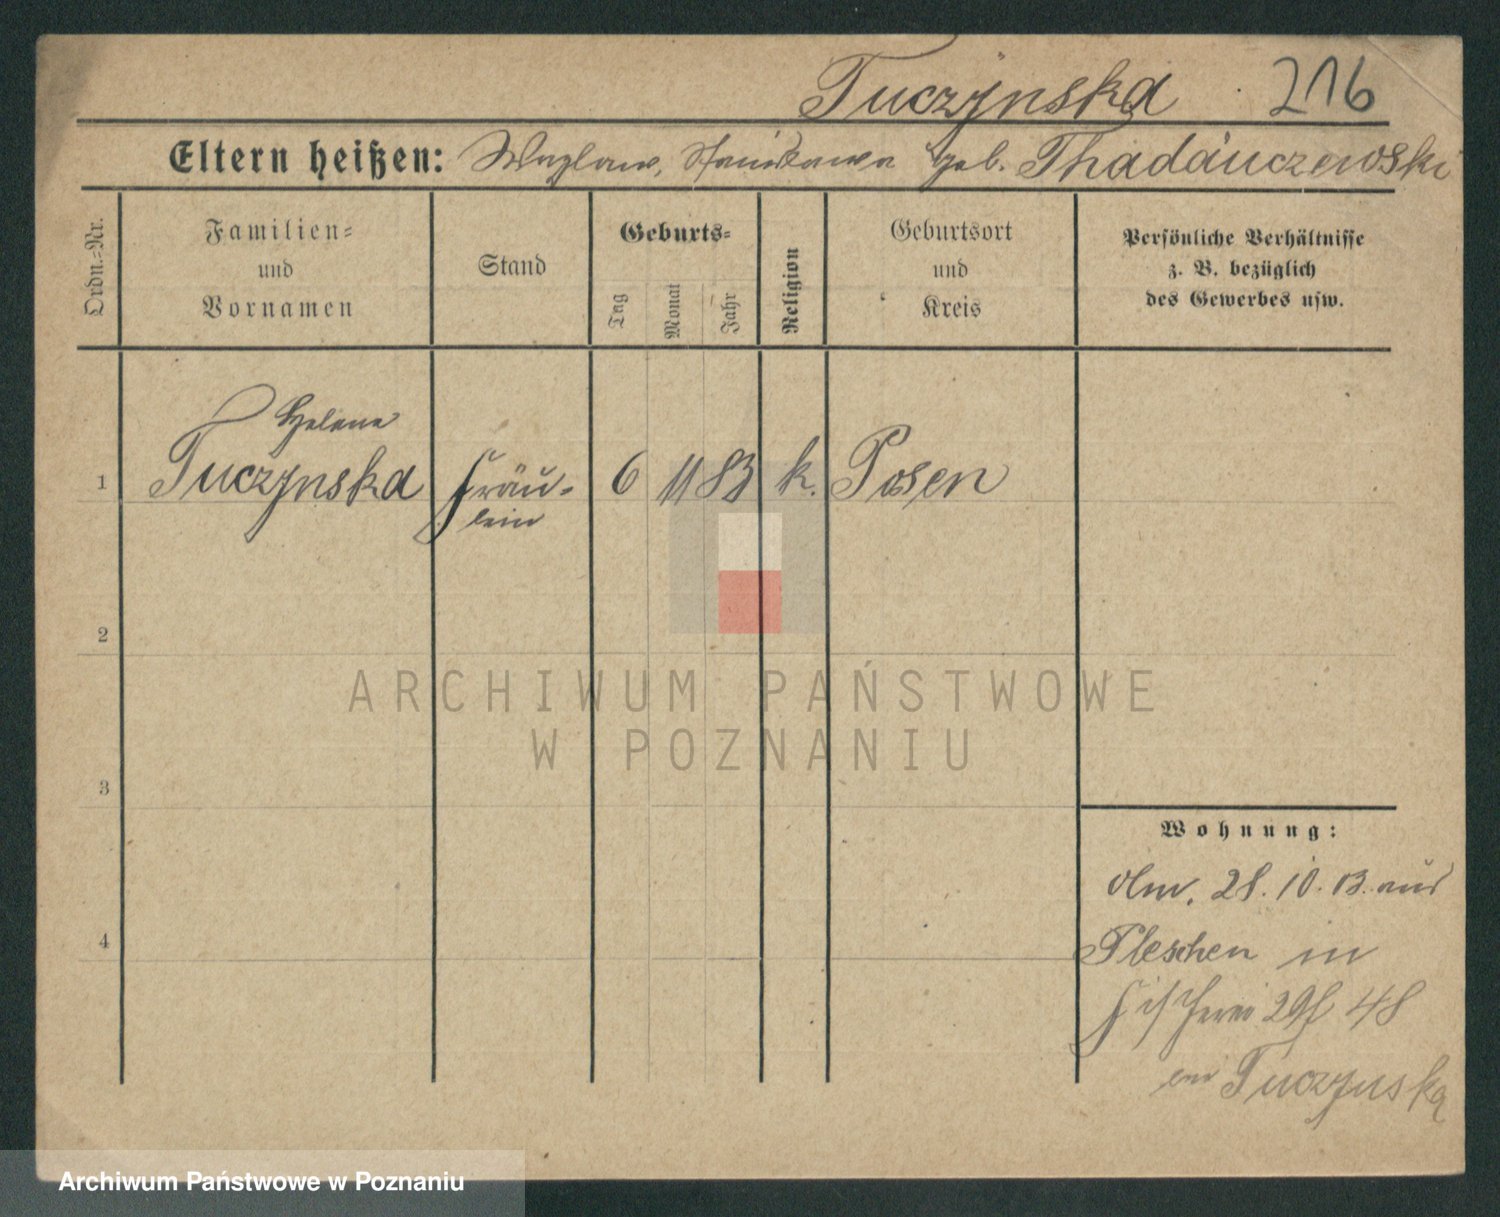 Tuczynska 216
Eltern heißen: Wazlaw, Stanislawa geb. Thadäuczewski
Ordn.-Nr.
Familien-
und
Vornamen
Stand
Geburts-
Tag
Monat
Jahr
Religion
Geburtsort
und
Kreis
Persönliche Verhältnisse
z. B. bezüglich
des Gewerbes usw.
Helene
1 Tuczynska Fräu- 6 11 83 k. Posen
lein
2
3
4
Wohnung:
28.10.03. aus
Pleschen in
Fischerei 48
Tuczynska
ARCHIWUM PAŃSTWOWE
W POZNANIU
Archiwum Państwowe w Poznaniu